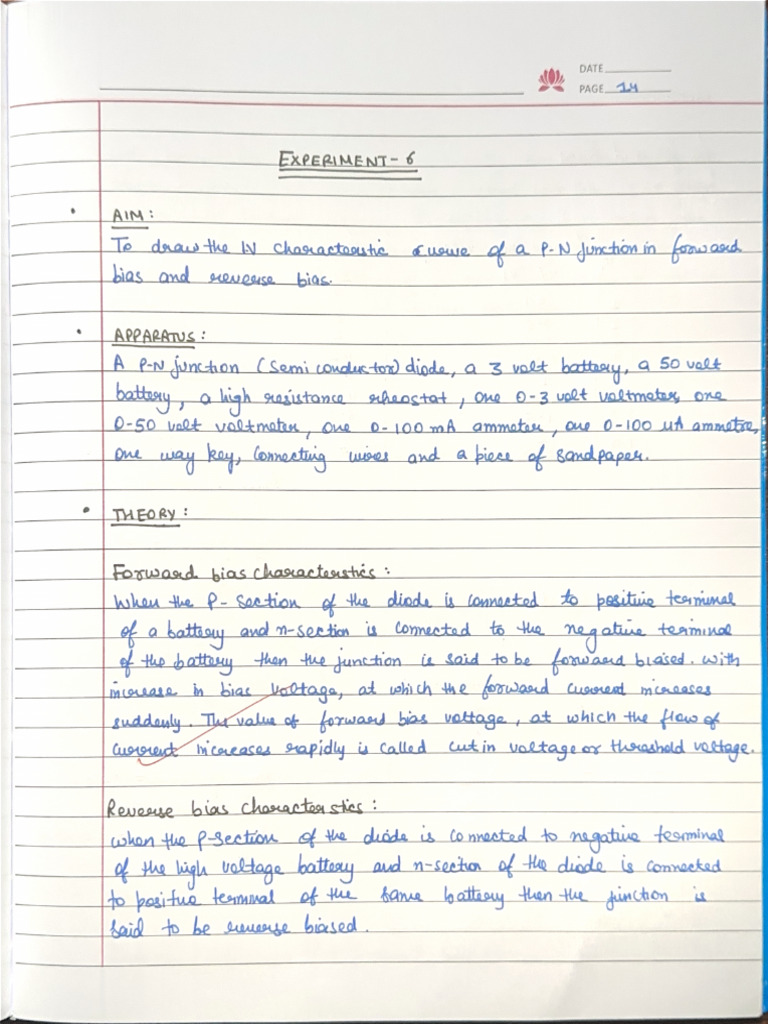 DATE
PAGE 14
EXPERIMENT-6
• AIM:
To draw the IV characteristic curve of a P-N junction in forward
bias and reverse bias.
• APPARATUS:
A P-N junction (semi conductor) diode, a 3 volt battery, a 50 volt
battery, a high resistance rheostat, one 0-3 volt voltmeter, one
0-50 volt voltmeter, one 0-100 mA ammeter, one 0-100 µA ammeter,
one way key, connecting wires and a piece of sandpaper.
• THEORY:
Forward bias characteristics:
When the P-section of the diode is connected to positive terminal
of a battery and n-section is connected to the negative terminal
of the battery then the junction is said to be forward biased. With
increase in bias voltage, at which the forward current increases
suddenly. The value of forward bias voltage, at which the flow of
current increases rapidly is called cut in voltage or threshold voltage.
Reverse bias characteristics:
When the P-section of the diode is connected to negative terminal
of the high voltage battery and n-section of the diode is connected
to positive terminal of the same battery then the junction is
said to be reverse biased.